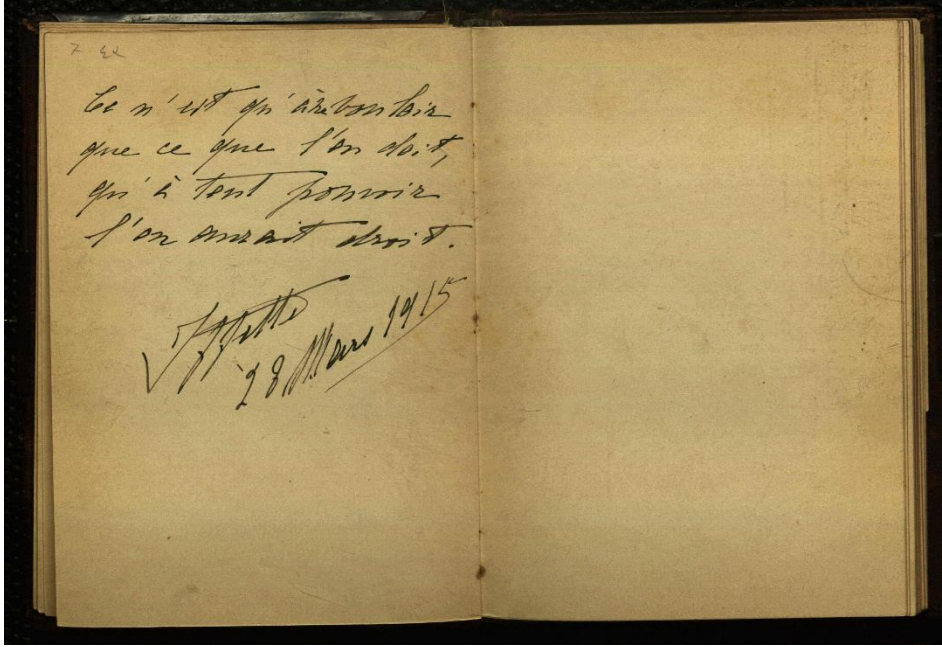 Ce n'est qu'à ne vouloir
que ce que l'on doit,
qu'à tout pouvoir
l'on aurait droit.
28 Mars 1915